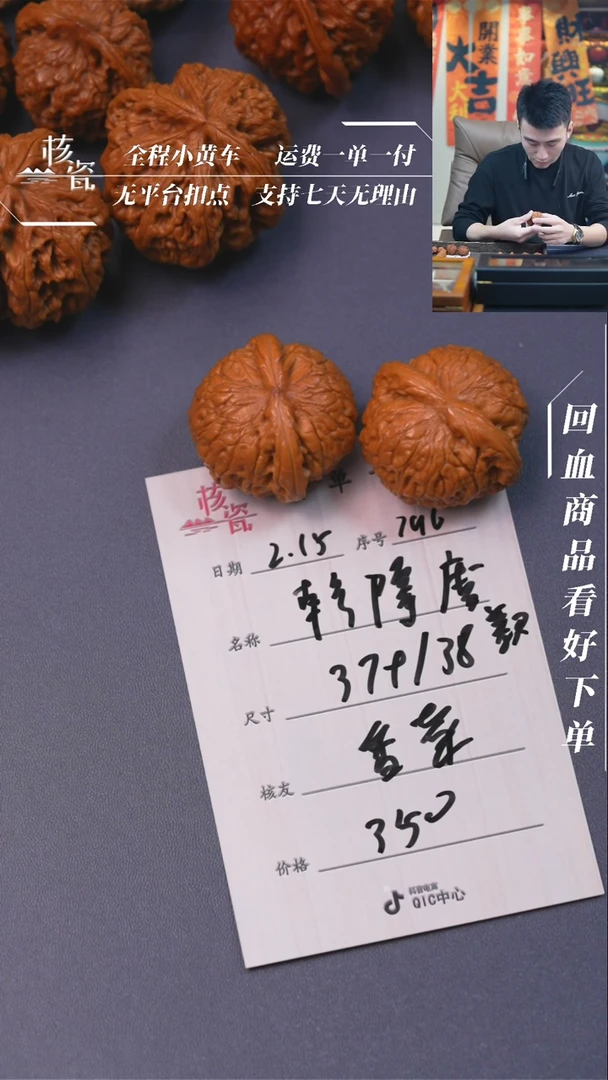 開業
大吉
大利
事事如意
財興旺
核瓷
全程小黄车 运费一单一付
无平台扣点 支持七天无理由
回血商品看好下单
核瓷
单
日期 2.15 序号 796
名称 乾隆
尺寸 37+/38 款
核友 香菜
价格 350
抖音电商
QIC中心